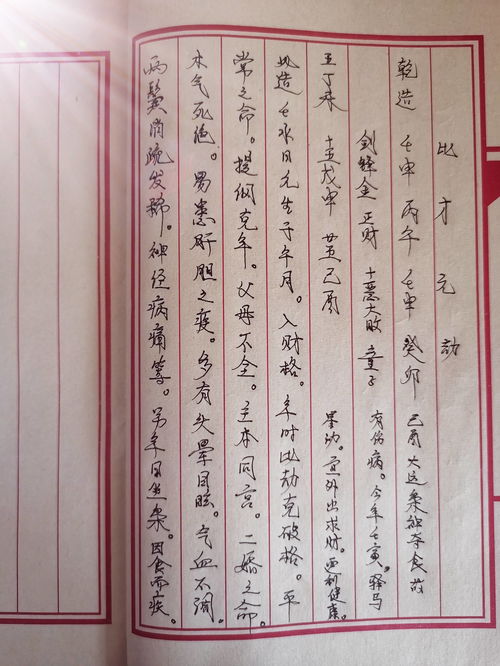 比 才 元 劫
乾造 壬申 丙午 壬申 癸卯 己酉大运枭神夺食故
剑锋金 正财 十恶大败 童子 有伤病。今年壬寅。驿马
五丁未 十五戊申 廿五己酉 星动。宜外出求财。也利健康。
此造壬水日元生于午月。入财格。年时比劫克破格。平
常之命。提纲克年。父母不全。主本同宫。二婚之命。
木气死绝。易患肝胆之疾。多有头晕目眩。气血不调。
两鬓消疏发稀。神经病痛等。另年日坐枭。因食而疾。